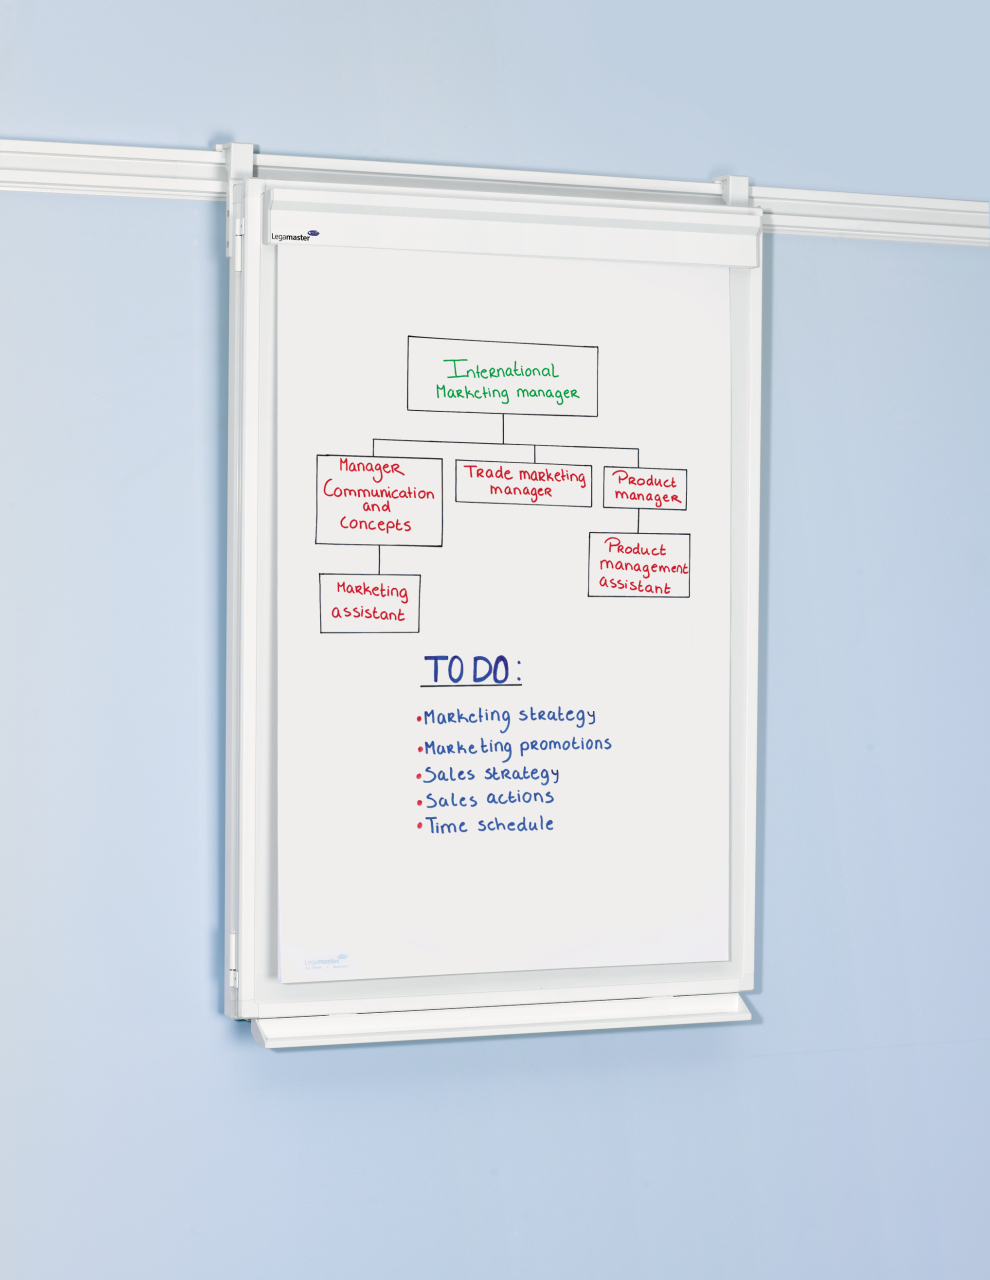 Legamaster
International
Marketing manager
Manager
Communication
and
Concepts
Trade marketing
manager
Product
manager
Marketing
assistant
Product
management
assistant
TO DO:
•Marketing strategy
•Marketing promotions
•Sales strategy
•Sales actions
•Time schedule
Legamaster